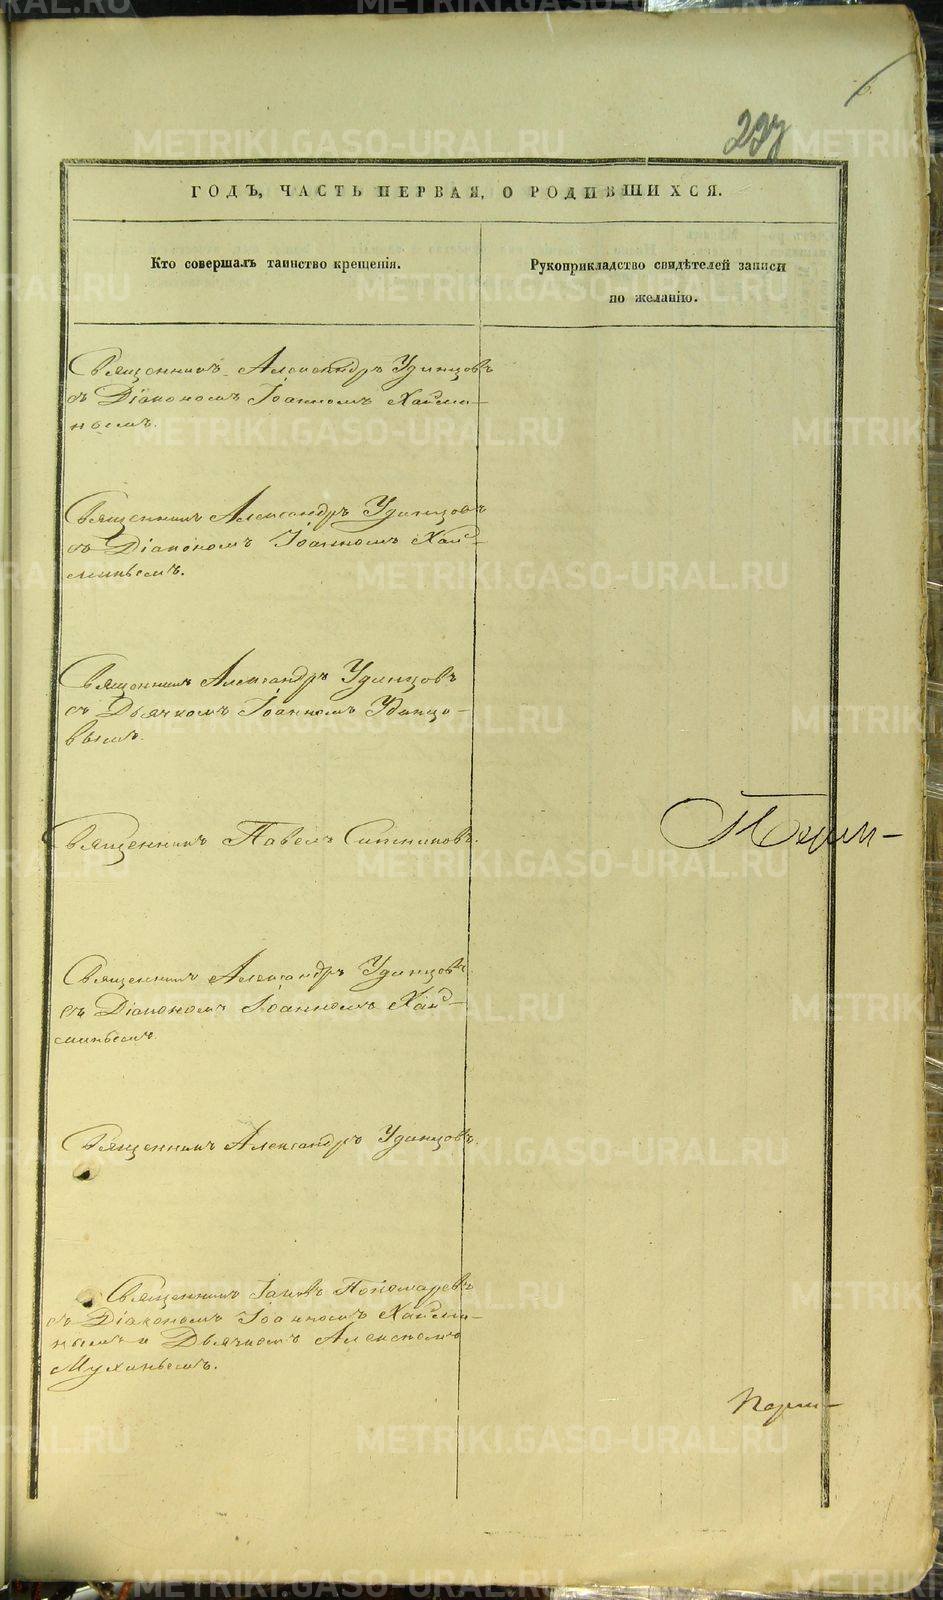 6.
237
ГОДЪ, ЧАСТЬ ПЕРВАЯ, О РОДИВШИХСЯ.
Кто совершалъ таинство крещенія.
Рукоприкладство свидѣтелей записи
по желанію.
Священникъ Александръ Удинцовъ
съ Діакономъ Іоанномъ Хайми-
нымъ.
Священникъ Александръ Удинцовъ
съ Діакономъ Іоанномъ Хай-
минымъ.
Священникъ Александръ Удинцовъ
съ Дьячкомъ Іоанномъ Удинцо-
вымъ.
Священникъ Павелъ Ситниковъ.
Перм-
Священникъ Александръ Удинцовъ
съ Діакономъ Іоанномъ Хай-
минымъ.
Священникъ Александръ Удинцовъ.
Священникъ Іаковъ Пономаревъ
съ Діакономъ Іоанномъ Хайми-
нымъ и Дьячкомъ Алексѣемъ
Мухинымъ.
METRIKI.GASO-URAL.RU